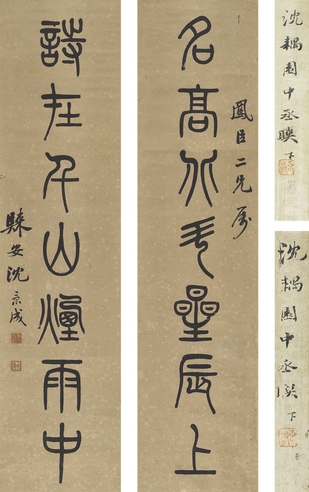 沈耦園中丞
沈耦園中丞
鳳臣二兄属
名高北斗星辰上
詩在千山煙雨中
歸安沈秉成